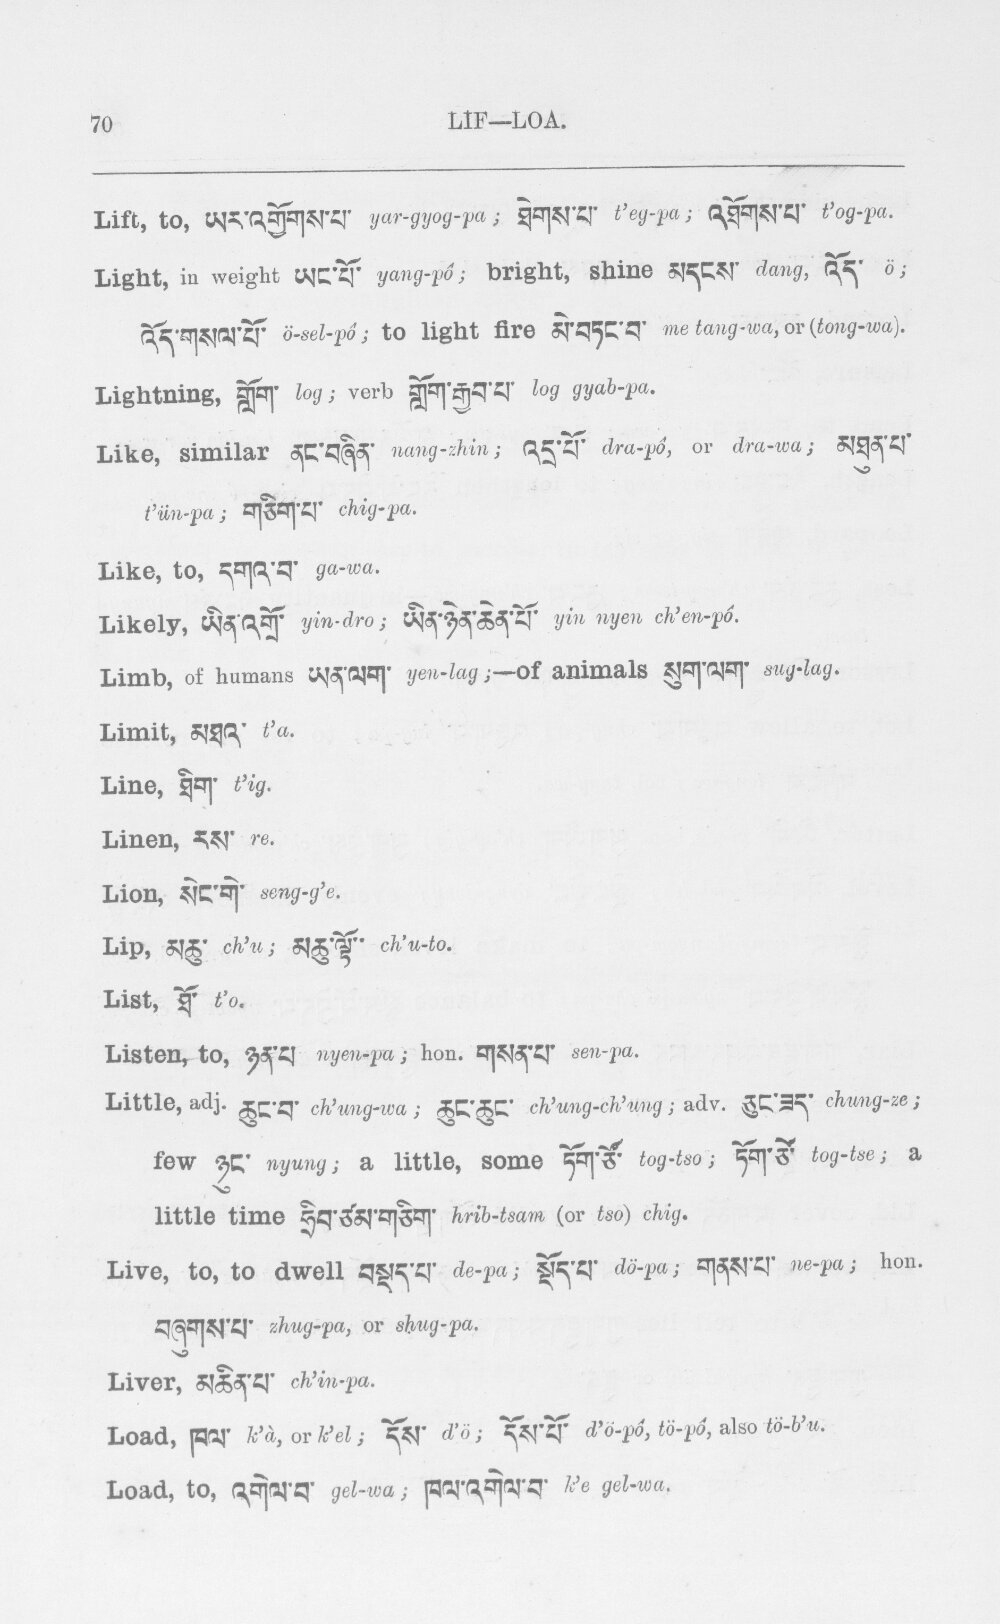 70 LIF—LOA.
Lift, to, ཡར་འགྱོགས་པ་ yar-gyog-pa; ཐེགས་པ་ t'eg-pa; འཐོགས་པ་ t'og-pa.
Light, in weight ཡང་པོ་ yang-pó; bright, shine མདངས་ dang, འོད་ ö;
འོད་གསལ་པོ་ ö-sel-pó; to light fire མེ་བཏང་བ་ me tang-wa, or (tong-wa).
Lightning, གློག་ log; verb གློག་རྒྱབ་པ་ log gyab-pa.
Like, similar ནང་བཞིན་ nang-zhin; འདྲ་པོ་ dra-pó, or dra-wa; མཐུན་པ་
t'ün-pa; གཅིག་པ་ chig-pa.
Like, to, དགའ་བ་ ga-wa.
Likely, ཡིན་འགྲོ་ yin-dro; ཡིན་ཉེན་ཆེན་པོ་ yin nyen ch'en-pó.
Limb, of humans ཡན་ལག་ yen-lag;—of animals སུག་ལག་ sug-lag.
Limit, མཐའ་ t'a.
Line, ཐིག་ t'ig.
Linen, རས་ re.
Lion, སེང་གེ་ seng-g'e.
Lip, མཆུ་ ch'u; མཆུ་ལྟོ་ ch'u-to.
List, ཐོ་ t'o.
Listen, to, ཉན་པ nyen-pa; hon. གསན་པ་ sen-pa.
Little, adj. ཆུང་བ་ ch'ung-wa; ཆུང་ཆུང་ ch'ung-ch'ung; adv. ཅུང་ཟད་ chung-ze;
few ཉུང་ nyung; a little, some ཏོག་ཙོ་ tog-tso; ཏོག་ཙེ་ tog-tse; a
little time ཧྲིབ་ཙམ་གཅིག་ hrib-tsam (or tso) chig.
Live, to, to dwell བསྡད་པ་ de-pa; སྡོད་པ་ dö-pa; གནས་པ་ ne-pa; hon.
བཞུགས་པ་ zhug-pa, or sḥug-pa.
Liver, མཆིན་པ་ ch'in-pa.
Load, ཁལ་ k'à, or k'el; དོས་ d'ö; དོས་པོ་ d'ö-pó, tö-pó, also tö-b'u.
Load, to, འགེལ་བ་ gel-wa; ཁལ་འགེལ་བ་ k'e gel-wa.